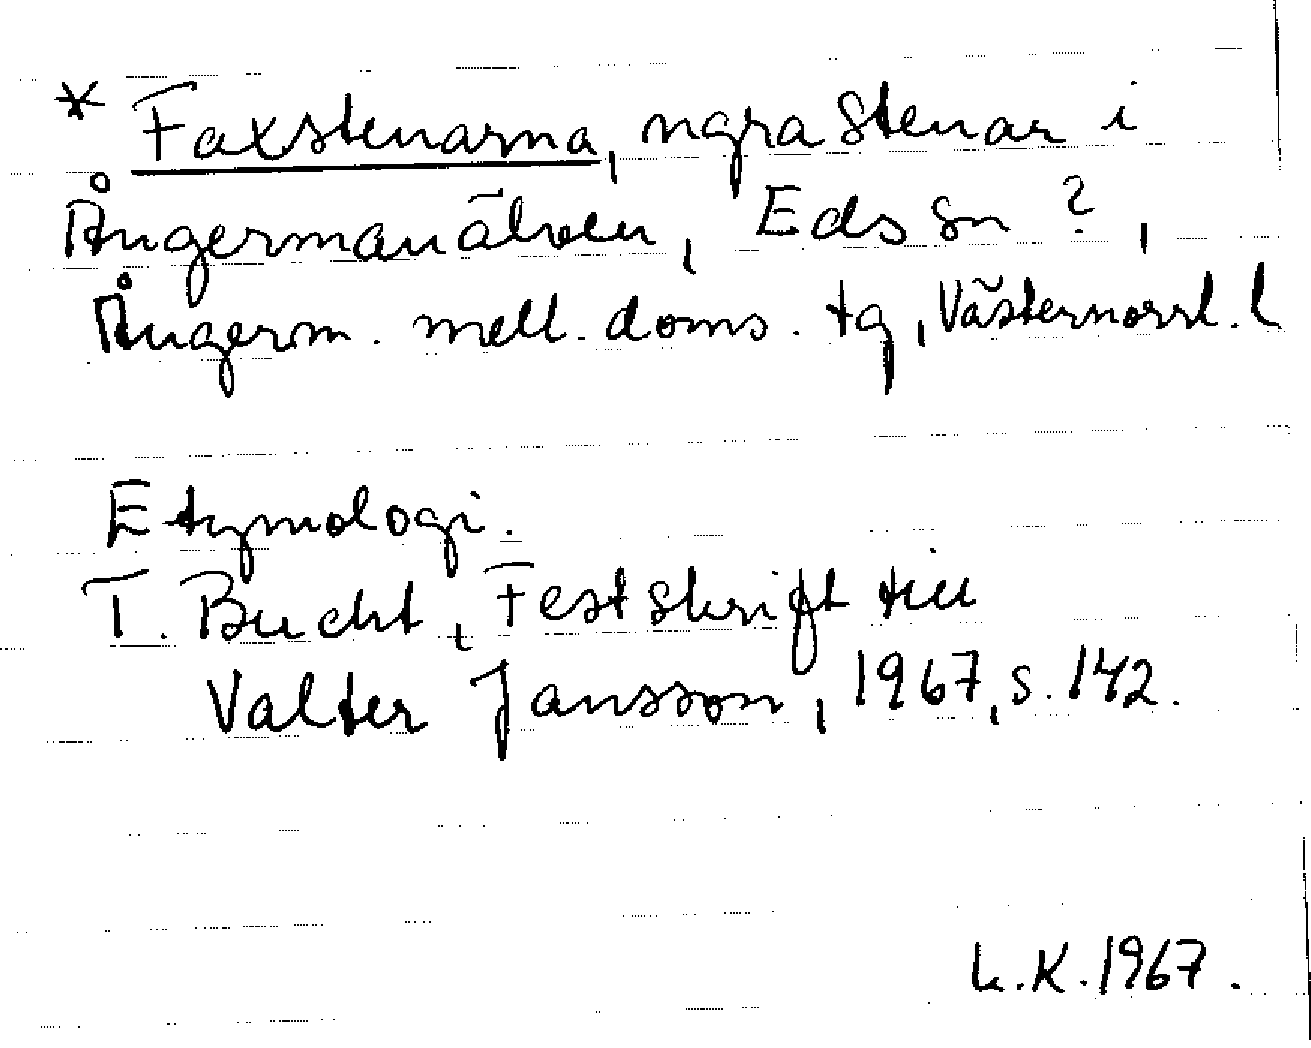 * Faxstenarna, ngra stenar i
Ångermanälven, Eds sn ?,
Ångerm. mell. doms. tg, Västernorrl. l
Etymologi.
T. Bucht, Festskrift till
Valter Jansson, 1967, s. 142.
L.K. 1967.